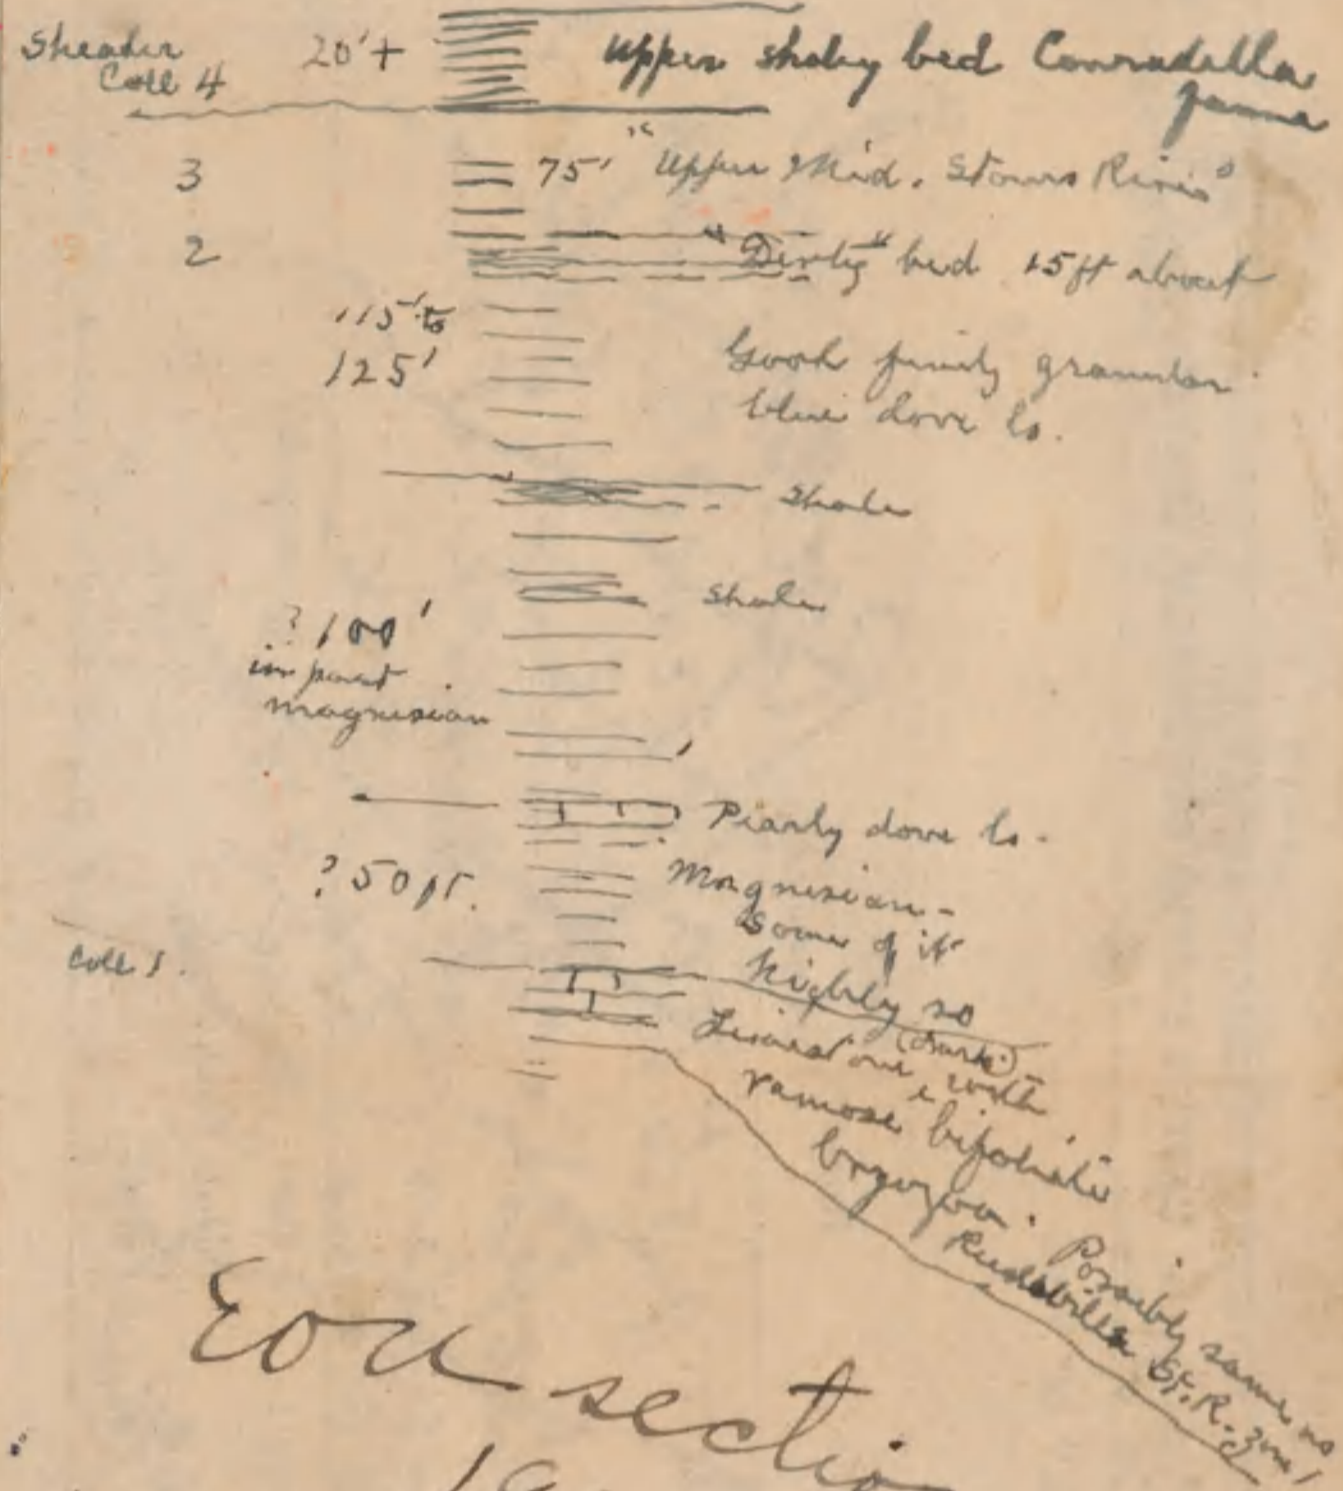 Coll 4
20'+
Upper shaly bed Conradella
3
75' "Upper Mid. Stones River"
2
"Dirty" bed 15 ft about
115' to
125'
Good finely granular
blue dove ls.
Shale
Shale
? 100'
in part
magnesian
Pearly dove ls.
? 50 ft.
Magnesian -
Some of it
highly so
Coll 1.
Limestone (dark) with
ramose bifoliate
bryozoa. Possibly same as
St. R. zone
section